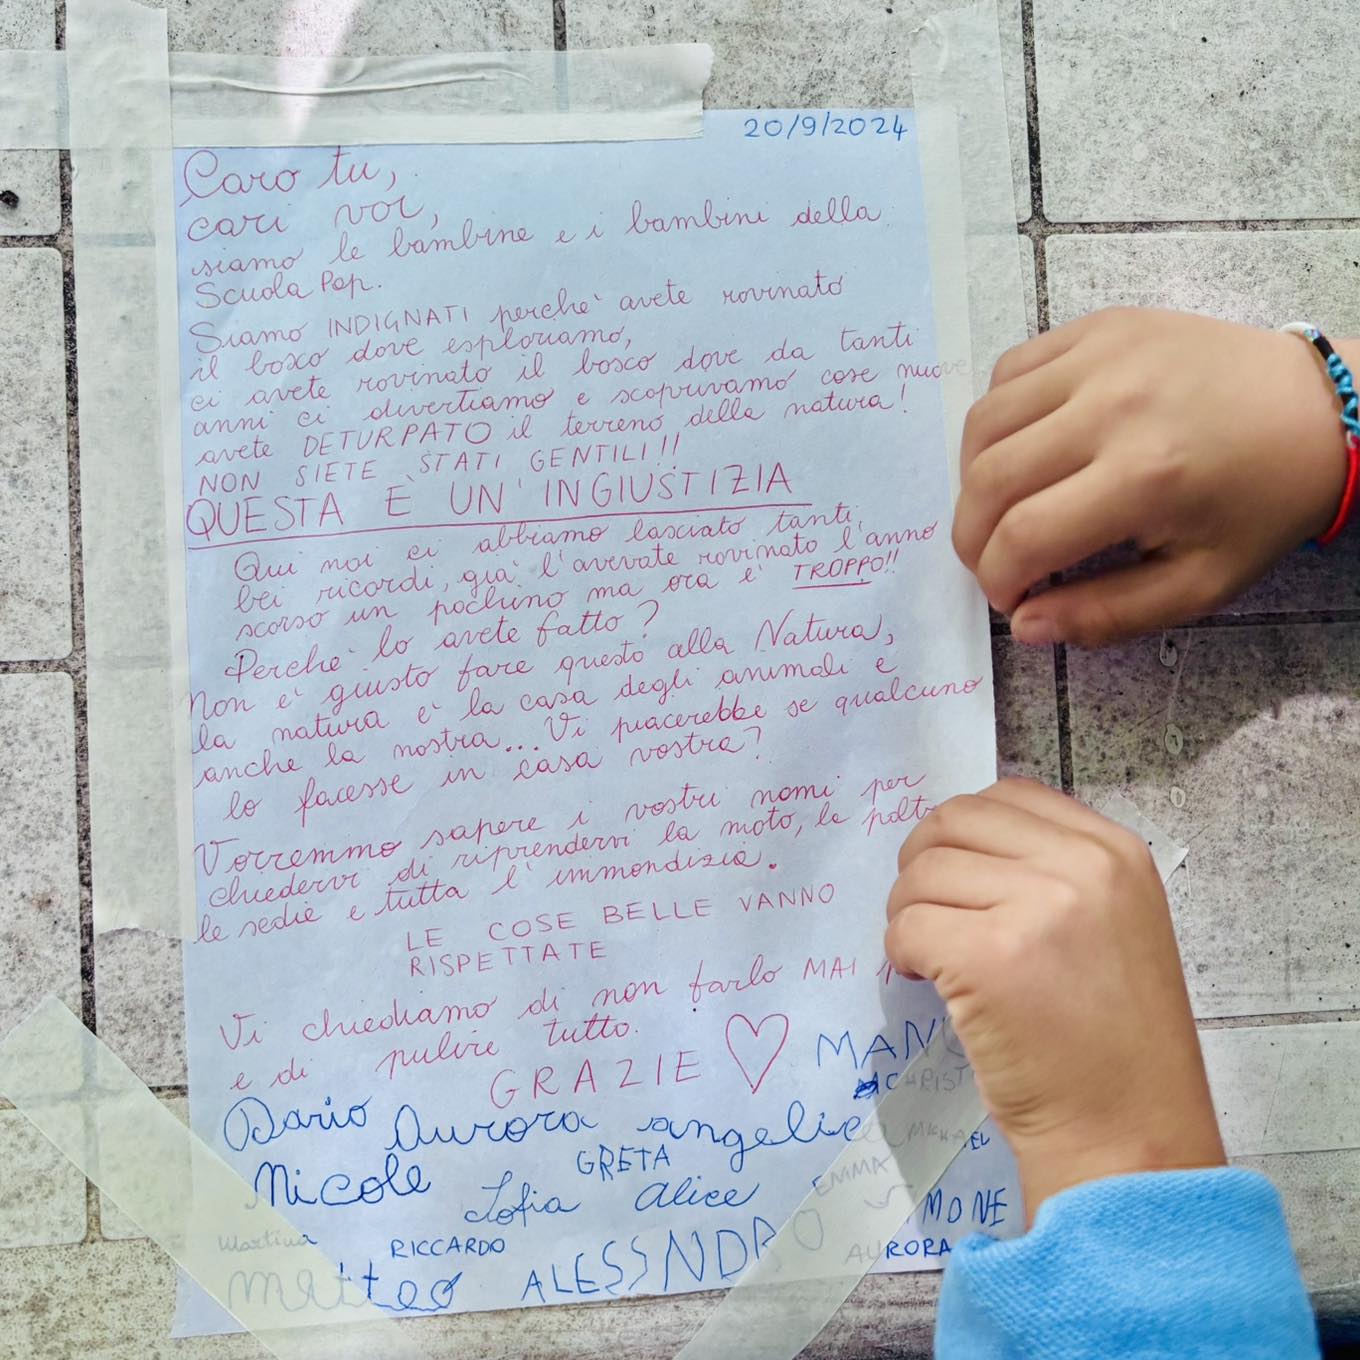 20/9/2024
Caro tu,
cari voi,
siamo le bambine e i bambini della
Scuola Pop.
Siamo INDIGNATI perchè avete rovinato
il bosco dove esploriamo,
ci avete rovinato il bosco dove da tanti
anni ci divertiamo e scoprivamo cose nuove
avete DETURPATO il terreno della natura!
NON SIETE STATI GENTILI!!
QUESTA È UN'INGIUSTIZIA
Qui noi ci abbiamo lasciato tanti
bei ricordi, già l'avevate rovinato l'anno
scorso un pochino ma ora è TROPPO!!
Perchè lo avete fatto?
Non è giusto fare questo alla Natura,
la natura è la casa degli animali e
anche la nostra... Vi piacerebbe se qualcuno
lo facesse in casa vostra?
Vorremmo sapere i vostri nomi per
chiedervi di riprendervi la moto, le
le sedie e tutta l'immondizia.
LE COSE BELLE VANNO
RISPETTATE
Vi chiediamo di non farlo MAI
e di pulire tutto.
GRAZIE
Dario Aurora angelica
Nicole GRETA EMMA
Sofia Alice SIMONE
Martina RICCARDO AURORA
Matteo ALESSNDRO